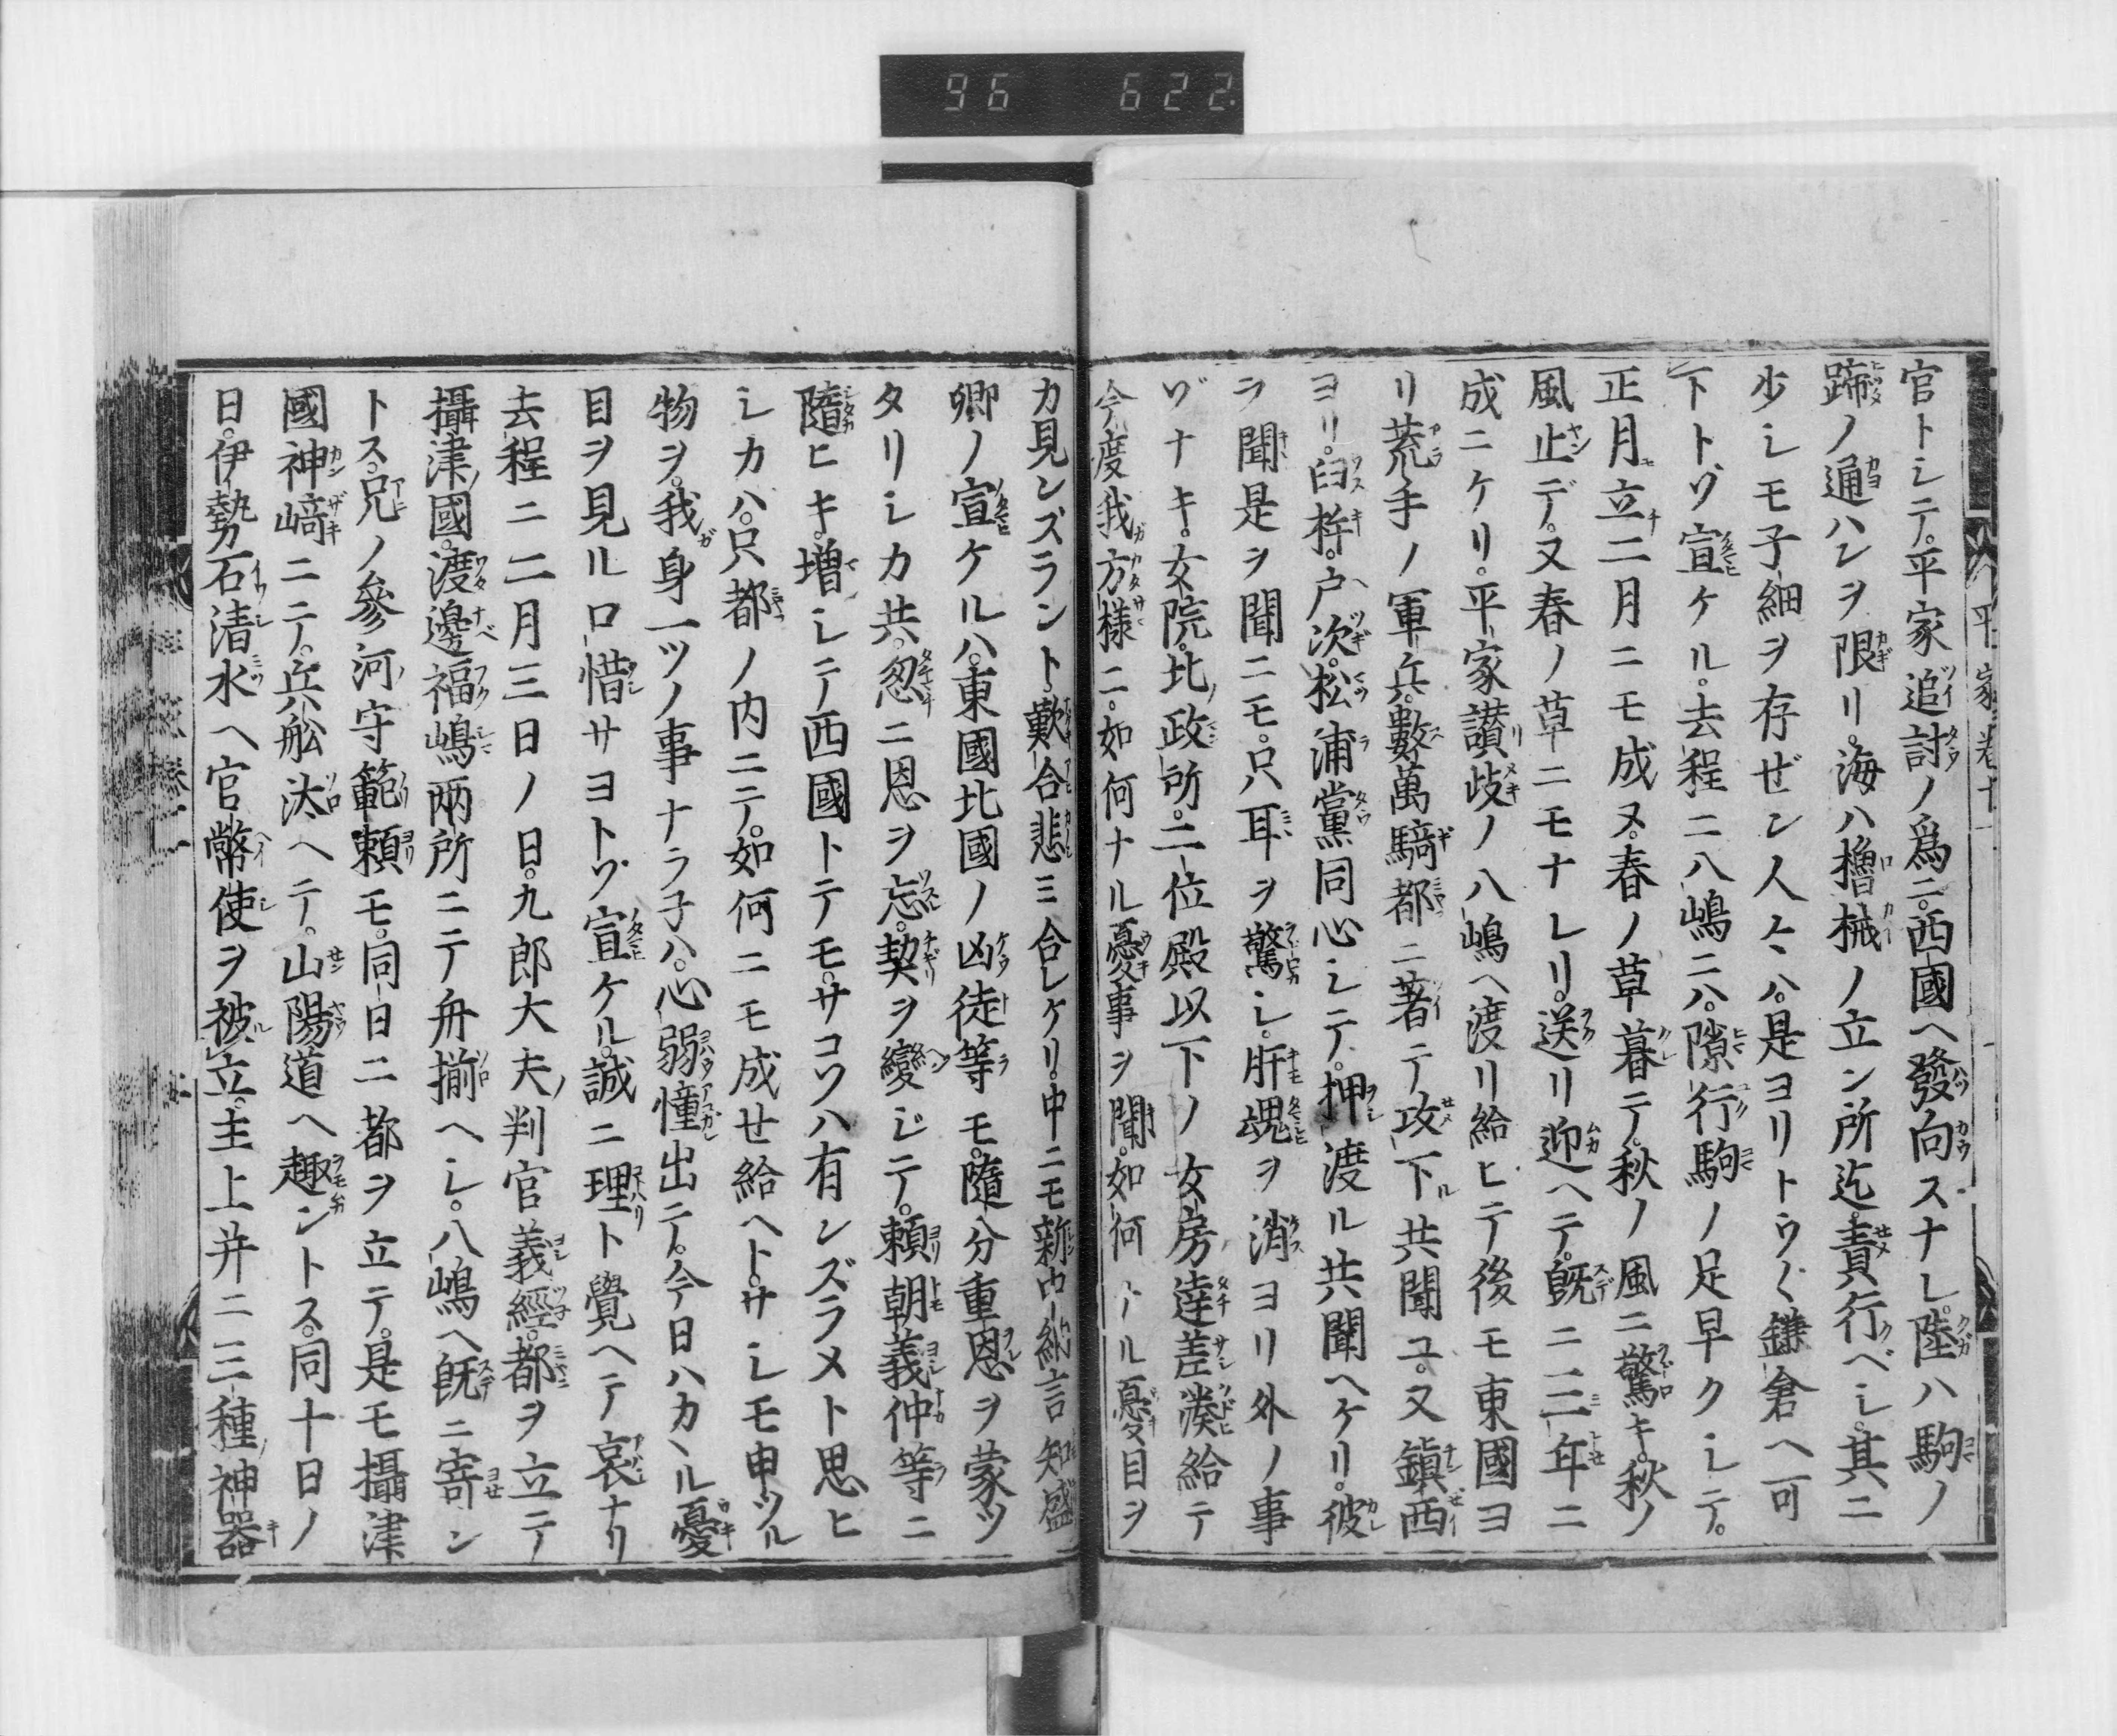 96 622
平家巻十一
官トシテ。平家追討ノ爲ニ。西國ヘ發向スナレ。陸ハ駒ノ
蹄ノ通ハンヲ限リ。海ハ櫓械ノ立ン所迄。責行ベシ。其ニ
少シモ子細ヲ存ゼン人々ハ。是ヨリトウ〱鎌倉ヘ可
下トゾ宣ケル。去程ニ八嶋ニハ。隙行駒ノ足早クシテ。
正月立二月ニモ成ヌ。春ノ草暮テ。秋ノ風ニ驚キ。秋ノ
風止デ。又春ノ草ニモナレリ。送リ迎ヘテ。既ニ三年ニ
成ニケリ。平家讃歧ノ八嶋ヘ渡リ給ヒテ後モ東國ヨ
リ荒手ノ軍兵。數萬騎都ニ著テ攻下ル共聞ユ。又鎭西
ヨリ。臼杵。戸次。松浦黨同心シテ。押渡ル共聞ヘケリ。彼
ヲ聞是ヲ聞ニモ。只耳ヲ驚シ。肝魂ヲ消ヨリ外ノ事
ゾナキ。女院。北政所。二位殿以下ノ女房達差湊給テ
今度我方様ニ。如何ナル憂事ヲ聞。如何ナル憂目ヲ
カ見ンズラント歎合悲ミ合レケリ。中ニモ新中納言知盛
卿ノ宣ケルハ。東國北國ノ凶徒等モ。隨分重恩ヲ蒙ツ
タリシカ共。忽ニ恩ヲ忘。契ヲ變ジテ。頼朝義仲等ニ
隨ヒキ。増シテ西國トテモ。サコソハ有ンズラメト思ヒ
シカハ。只都ノ内ニテ。如何ニモ成せ給ヘト。サシモ申ツル
物ヲ。我身一ツノ事ナラ子ハ。心弱憧出テ。今日ハカヽル憂
目ヲ見ルロ惜サヨトゾ宣ケル。誠ニ理ト覺ヘテ哀ナリ
去程ニ二月三日ノ日。九郎大夫判官義經。都ヲ立テ
攝津國。渡邊福嶋兩所ニテ舟揃ヘシ。八嶋ヘ既ニ寄ン
トス。兄ノ參河守範頼モ。同日ニ都ヲ立テ。是モ攝津
國神﨑ニテ。兵舩汰ヘテ。山陽道ヘ趣ントス。同十日ノ
日。伊勢石清水ヘ官幣使ヲ被立。主上并ニ三種神器